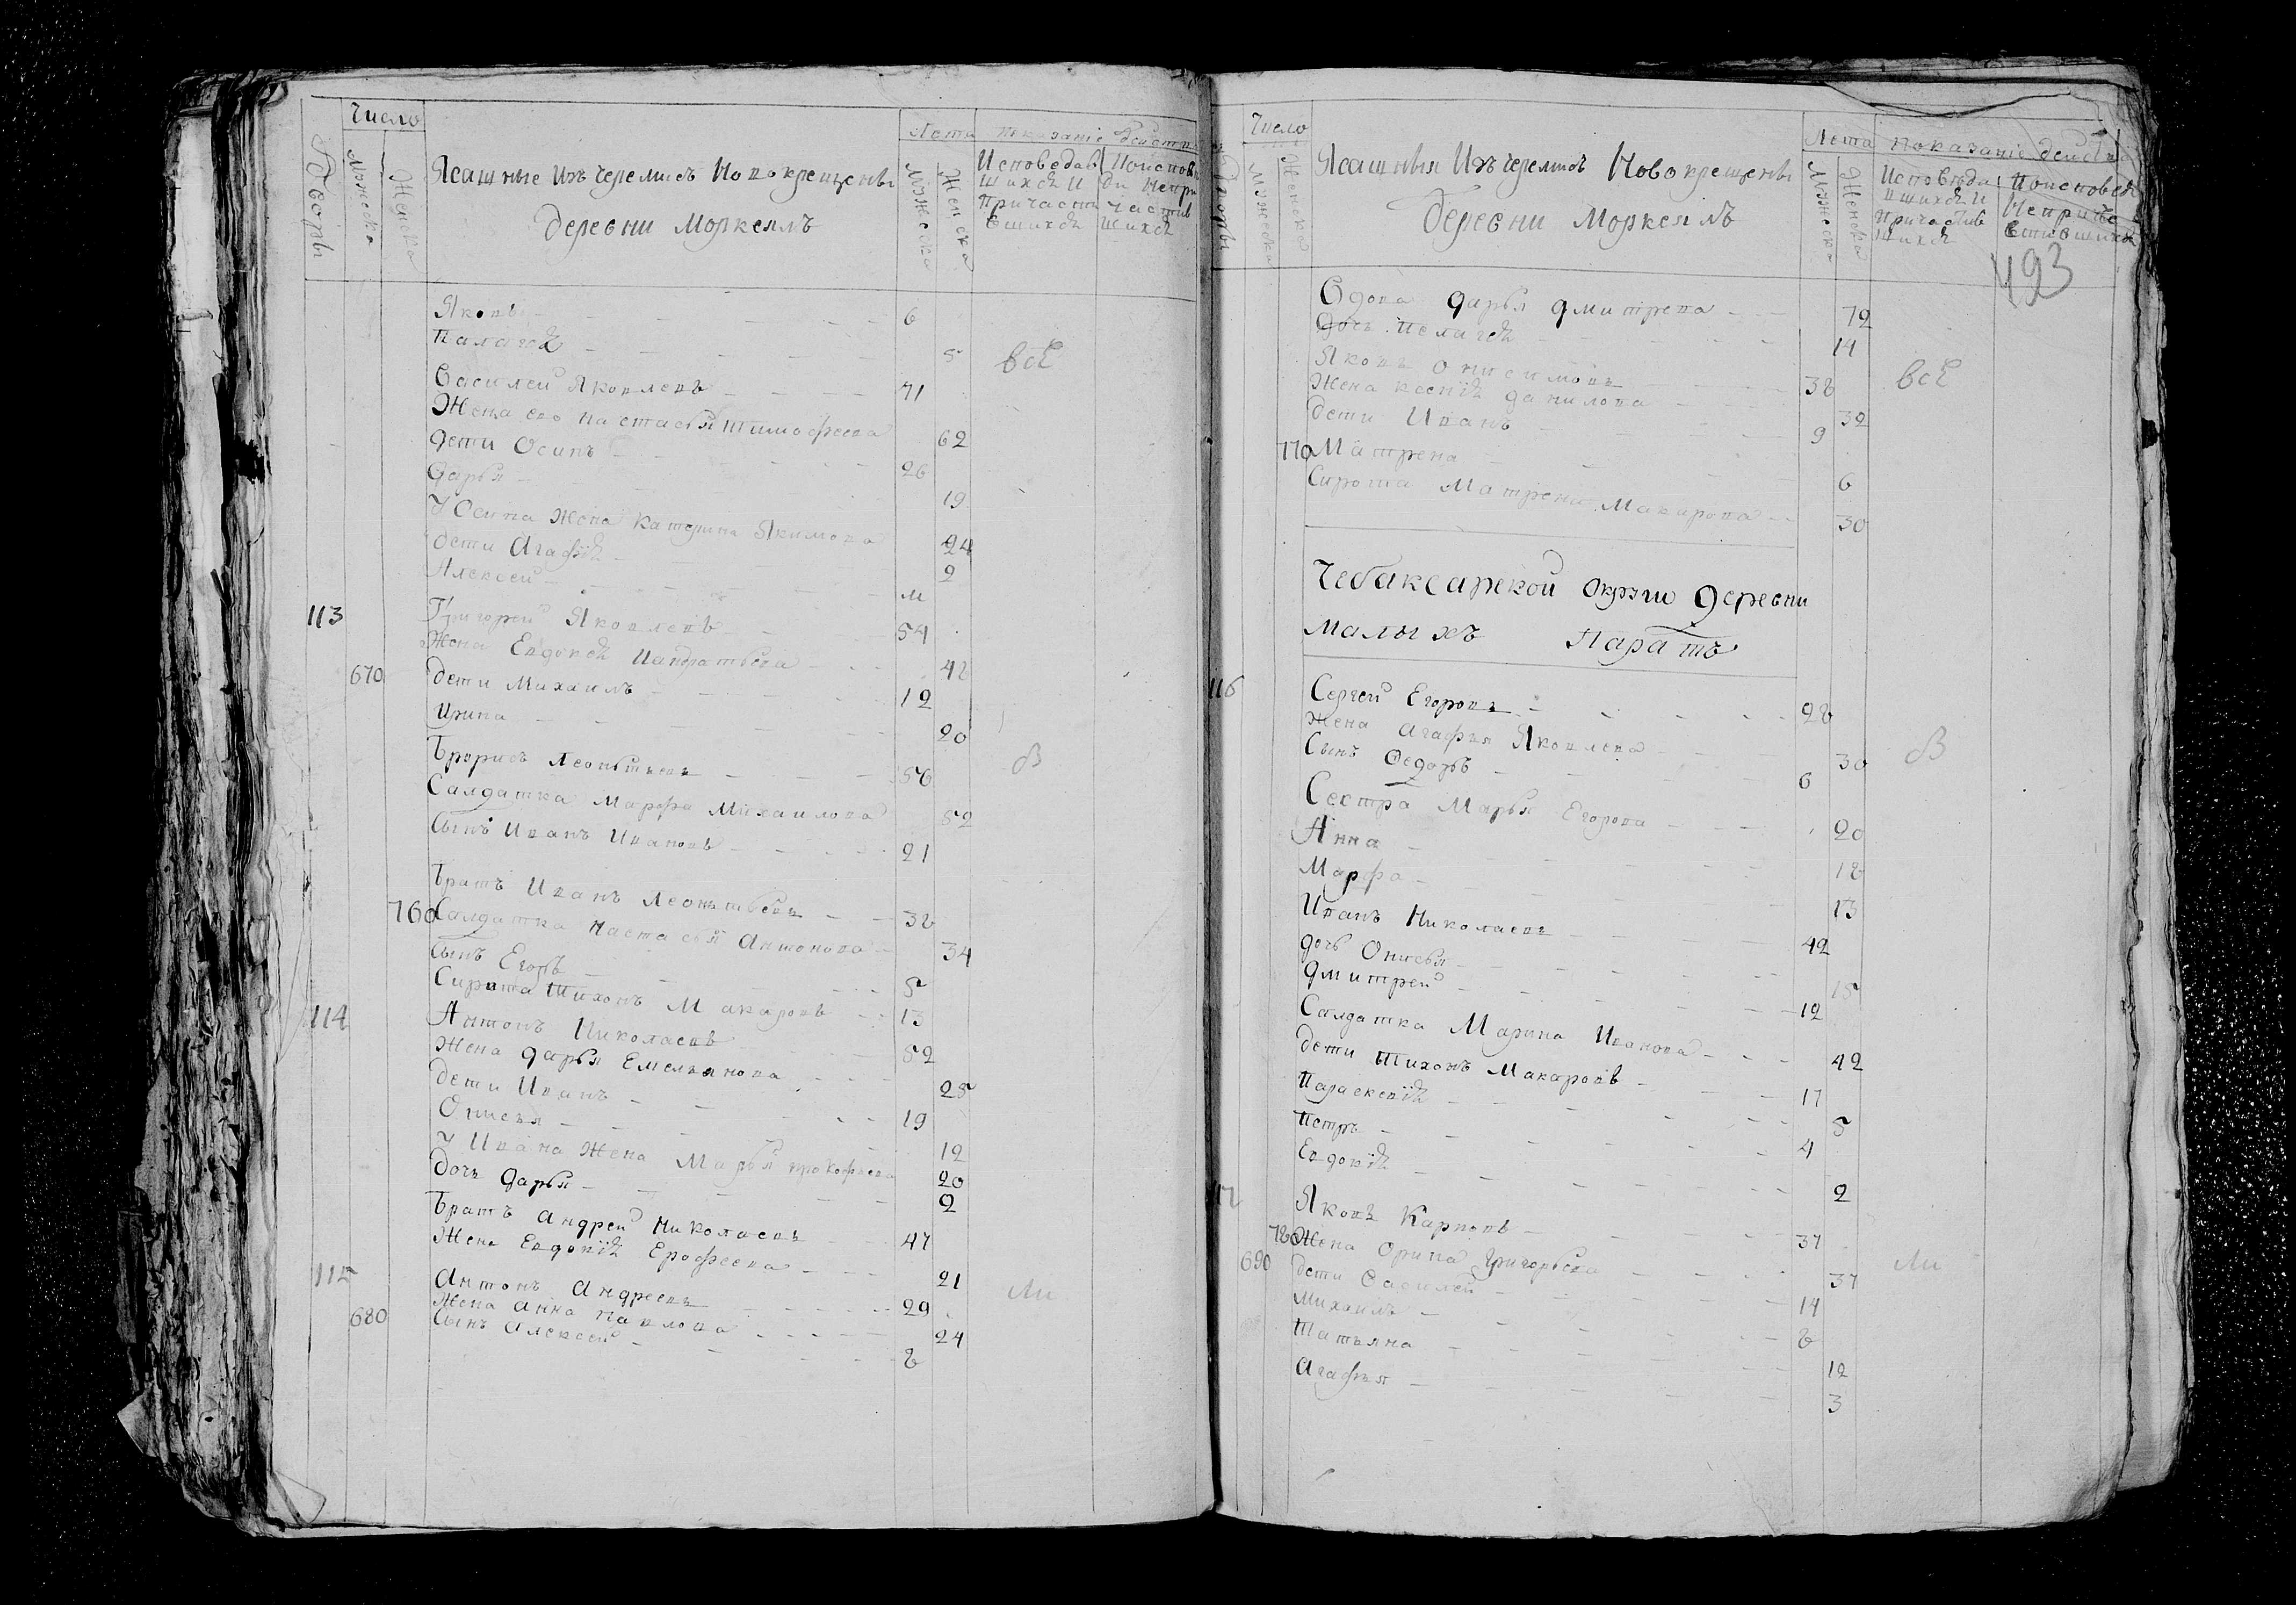 Число
Дворы
Мужеска
Женска
Ясашные Изъ черемисъ Новокрещены
деревни Моркеялъ
Лета
Показаніе Действ
Мужеска
Женска
Исповедав
шихсѧ И
Причасти
вшихсѧ
Яковъ 6
Палагеѧ 5
всѣ
Василеи Яковлевъ 71
Жена ево Настасья Тимофеева 62
дети Осипъ 26
Дарья 19
У Осипа Жена Катерина Якимова 24
дети Агафіѧ 2
Алексеи м
113 Григореи Яковлевъ 54
Жена Евдокеѧ 42
670 дети Михаилъ 12
Ирина 20
Брорисъ Леонтьевъ 56
в
Салдатка Марфа Михаилова 52
Сынъ Иванъ Ивановъ 21
Братъ Иванъ Леонтьевъ 38
760 Салдатка Настасья Антонова 34
Сынъ Егоръ 5
Сирота Тихонъ Макаровъ 13
114 Антонъ Николаевъ 52
Жена Дарья Емельянова 25
дети Иванъ 19
Онисья 12
У Ивана Жена Марья Прокофьева 20
дочь Дарья 2
Братъ Андреи Николаевъ 47
Жена Евдокіѧ Ерофеева 21
115 Антонъ Андреевъ 29
ли
Жена Анна Павлова 24
680 Сынъ Алексеи 8
Число
Дворы
Мужеска
Женска
Ясашныя Изъ черемисъ Новокрещены
деревни Моркеялъ
Лета
Показаніе деиств
Мужеска
Женска
Исповѣда
вшихсѧ И
Причастив
шихсѧ
493
Вдова Дарья Дмитрева 72
Дочь Пелагеѧ 14
всѣ
Яковъ Онисимовъ 38
Жена Ксеніѧ Данилова 32
дети Иванъ 9
770 Матрена 6
Сирота Матрена Макарова 30
Чебаксарскои округи деревни
Малыхъ Паратъ
116 Сергеи Егоровъ 28
Жена Агафья Яковлева 30
в
Сынъ Федоръ 6
Сестра Марья Егорова 20
Анна 18
Марфа 13
Иванъ Николаевъ 42
дочь Онисья 15
Дмитреи 12
Салдатка Марина Иванова 42
дети Тихонъ Макаровъ 17
Параскевіѧ 5
Петръ 4
Евдокіѧ 2
117 Яковъ Карповъ 37
780 Жена Орина Григорьева 37
ли
690 дети Василеи 14
Михаилъ 8
Татьяна 12
Агафья 3